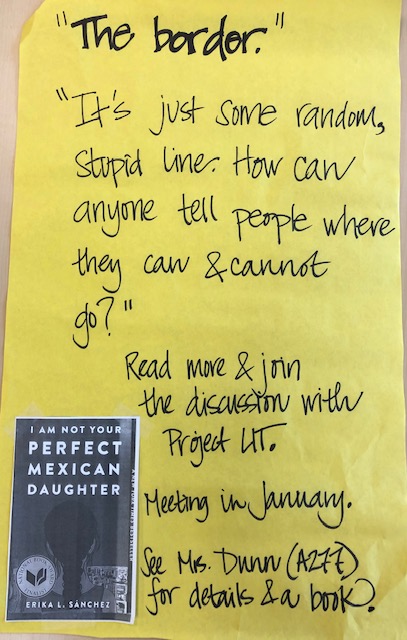 "The border."
"It's just some random,
stupid line. How can
anyone tell people where
they can & cannot
go?"
Read more & join
the discussion with
Project LIT.
Meeting in January.
See Mrs. Dunn (A277)
for details & a book.
I AM NOT YOUR
PERFECT
MEXICAN
DAUGHTER
NATIONAL BOOK
FINALIST
ERIKA L. SÁNCHEZ